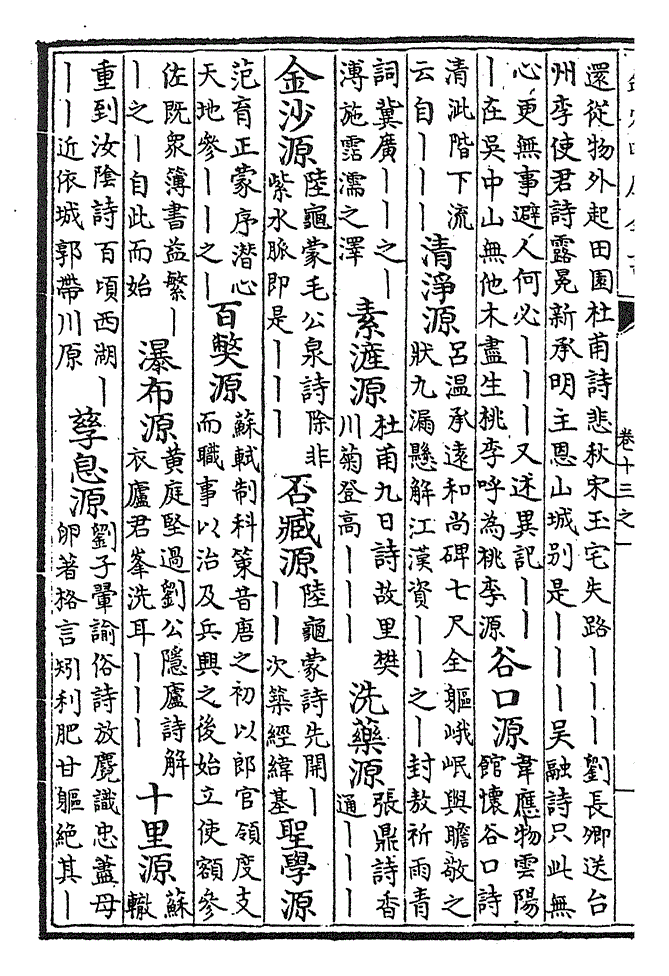 卷十三之一
還從物外起田園杜甫詩悲秋宋玉宅失路｜｜｜劉長卿送台
州李使君詩露冕新承明主恩山城别是｜｜｜吳融詩只此無
心更無事避人何必｜｜｜又述異記｜｜
｜在吳中山無他木盡生桃李呼為桃李源
谷口源
韋應物雲陽
館懷谷口詩
清泚階下流
云自｜｜｜
清淨源
呂温承遠和尚碑七尺全軀峨岷與瞻敬之
狀九漏懸解江漢資｜｜之｜封敖祈雨青
詞冀廣｜｜之｜
溥施霑濡之澤
素滻源
杜甫九日詩故里樊
川菊登高｜｜｜
洗藥源
張鼎詩香
通｜｜｜
金沙源
陸龜蒙毛公泉詩除非
紫水脈即是｜｜｜
否臧源
陸龜蒙詩先開｜
｜｜次築經緯基
聖學源
范育正蒙序潛心
天地參｜｜之｜
百獘源
蘇軾制科策昔唐之初以郎官領度支
而職事以治及兵興之後始立使額參
佐既衆簿書益繁｜
｜之｜自此而始
瀑布源
黄庭堅過劉公隱廬詩解
衣廬君峯洗耳｜｜｜
十里源
蘇
轍
重到汝陰詩百頃西湖｜
｜｜近依城郭帶川原
孳息源
劉子翬諭俗詩放麑識忠藎母
卵著格言矧利肥甘軀絶其｜